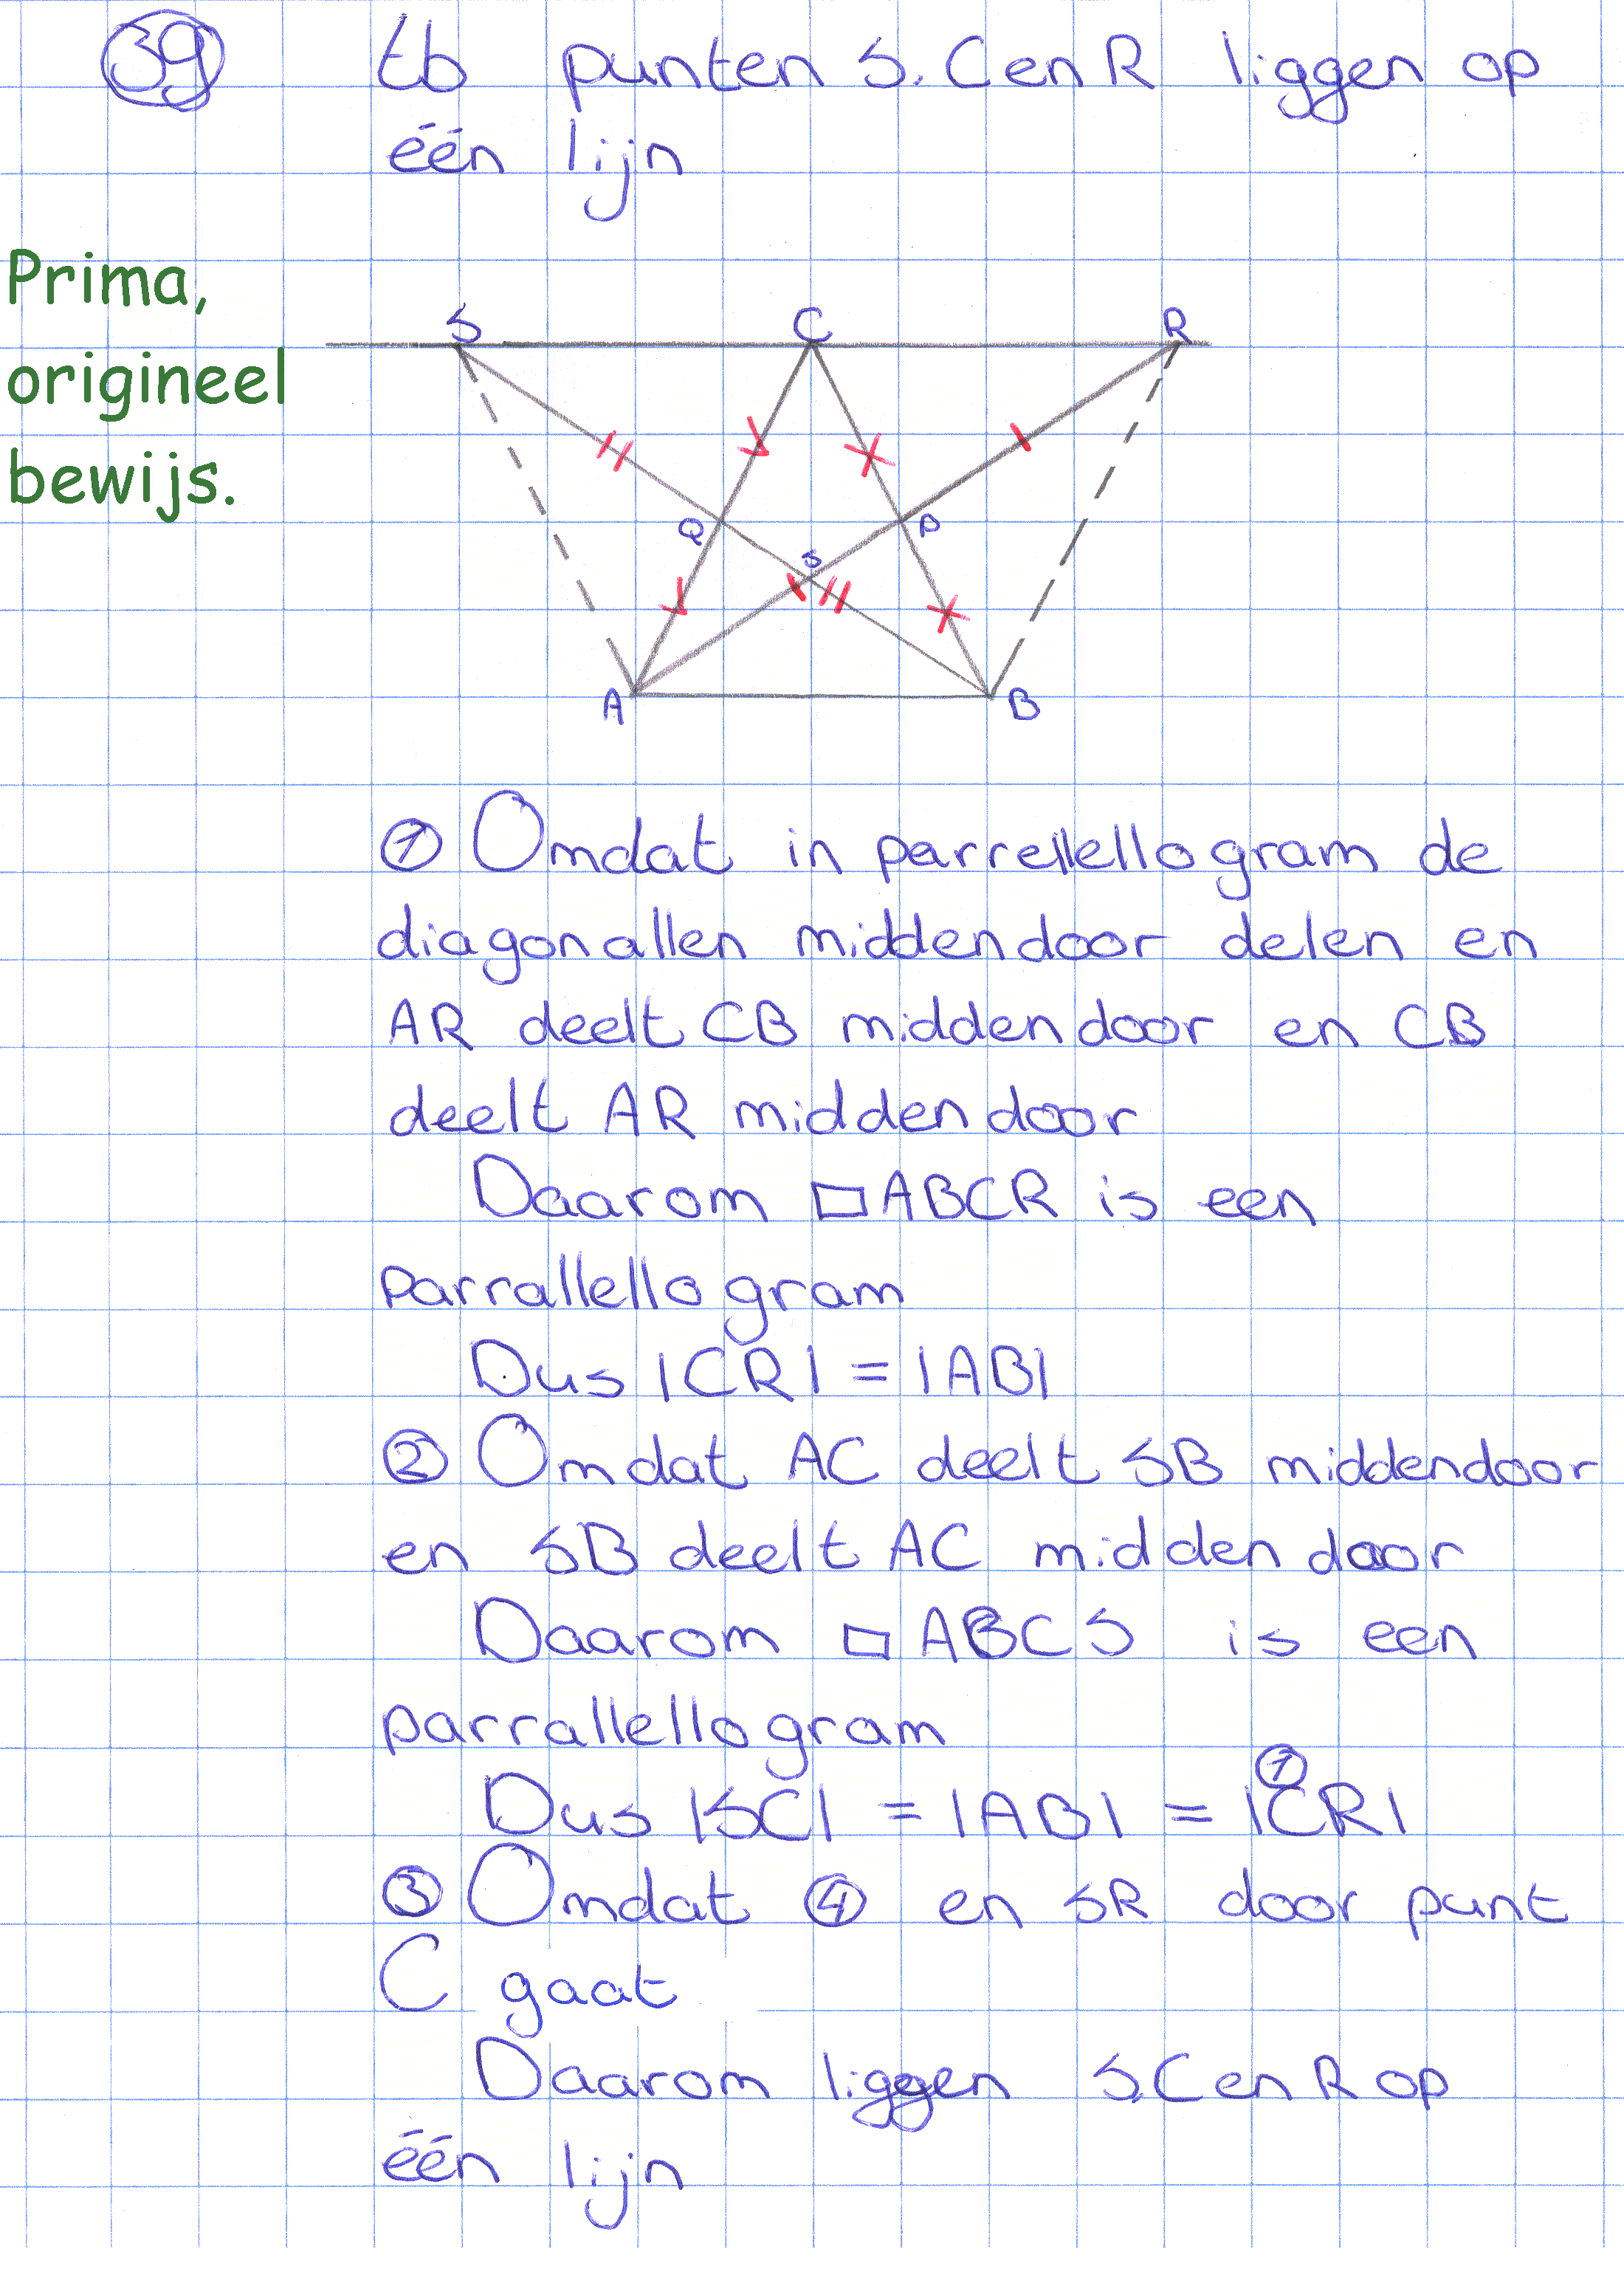 39 tb punten S, C en R liggen op
één lijn
Prima,
origineel
bewijs.
S C R
Q S P
A B
① Omdat in parrellellogram de
diagonallen middendoor delen en
AR deelt CB middendoor en CB
deelt AR middendoor
Daarom ▭ABCR is een
parrallellogram
Dus |CR| = |AB|
② Omdat AC deelt SB middendoor
en SB deelt AC middendoor
Daarom ▭ABCS is een
parrallellogram
①
Dus |SC| = |AB| = |CR|
③ Omdat ④ en SR door punt
C gaat
Daarom liggen S,C en R op
één lijn